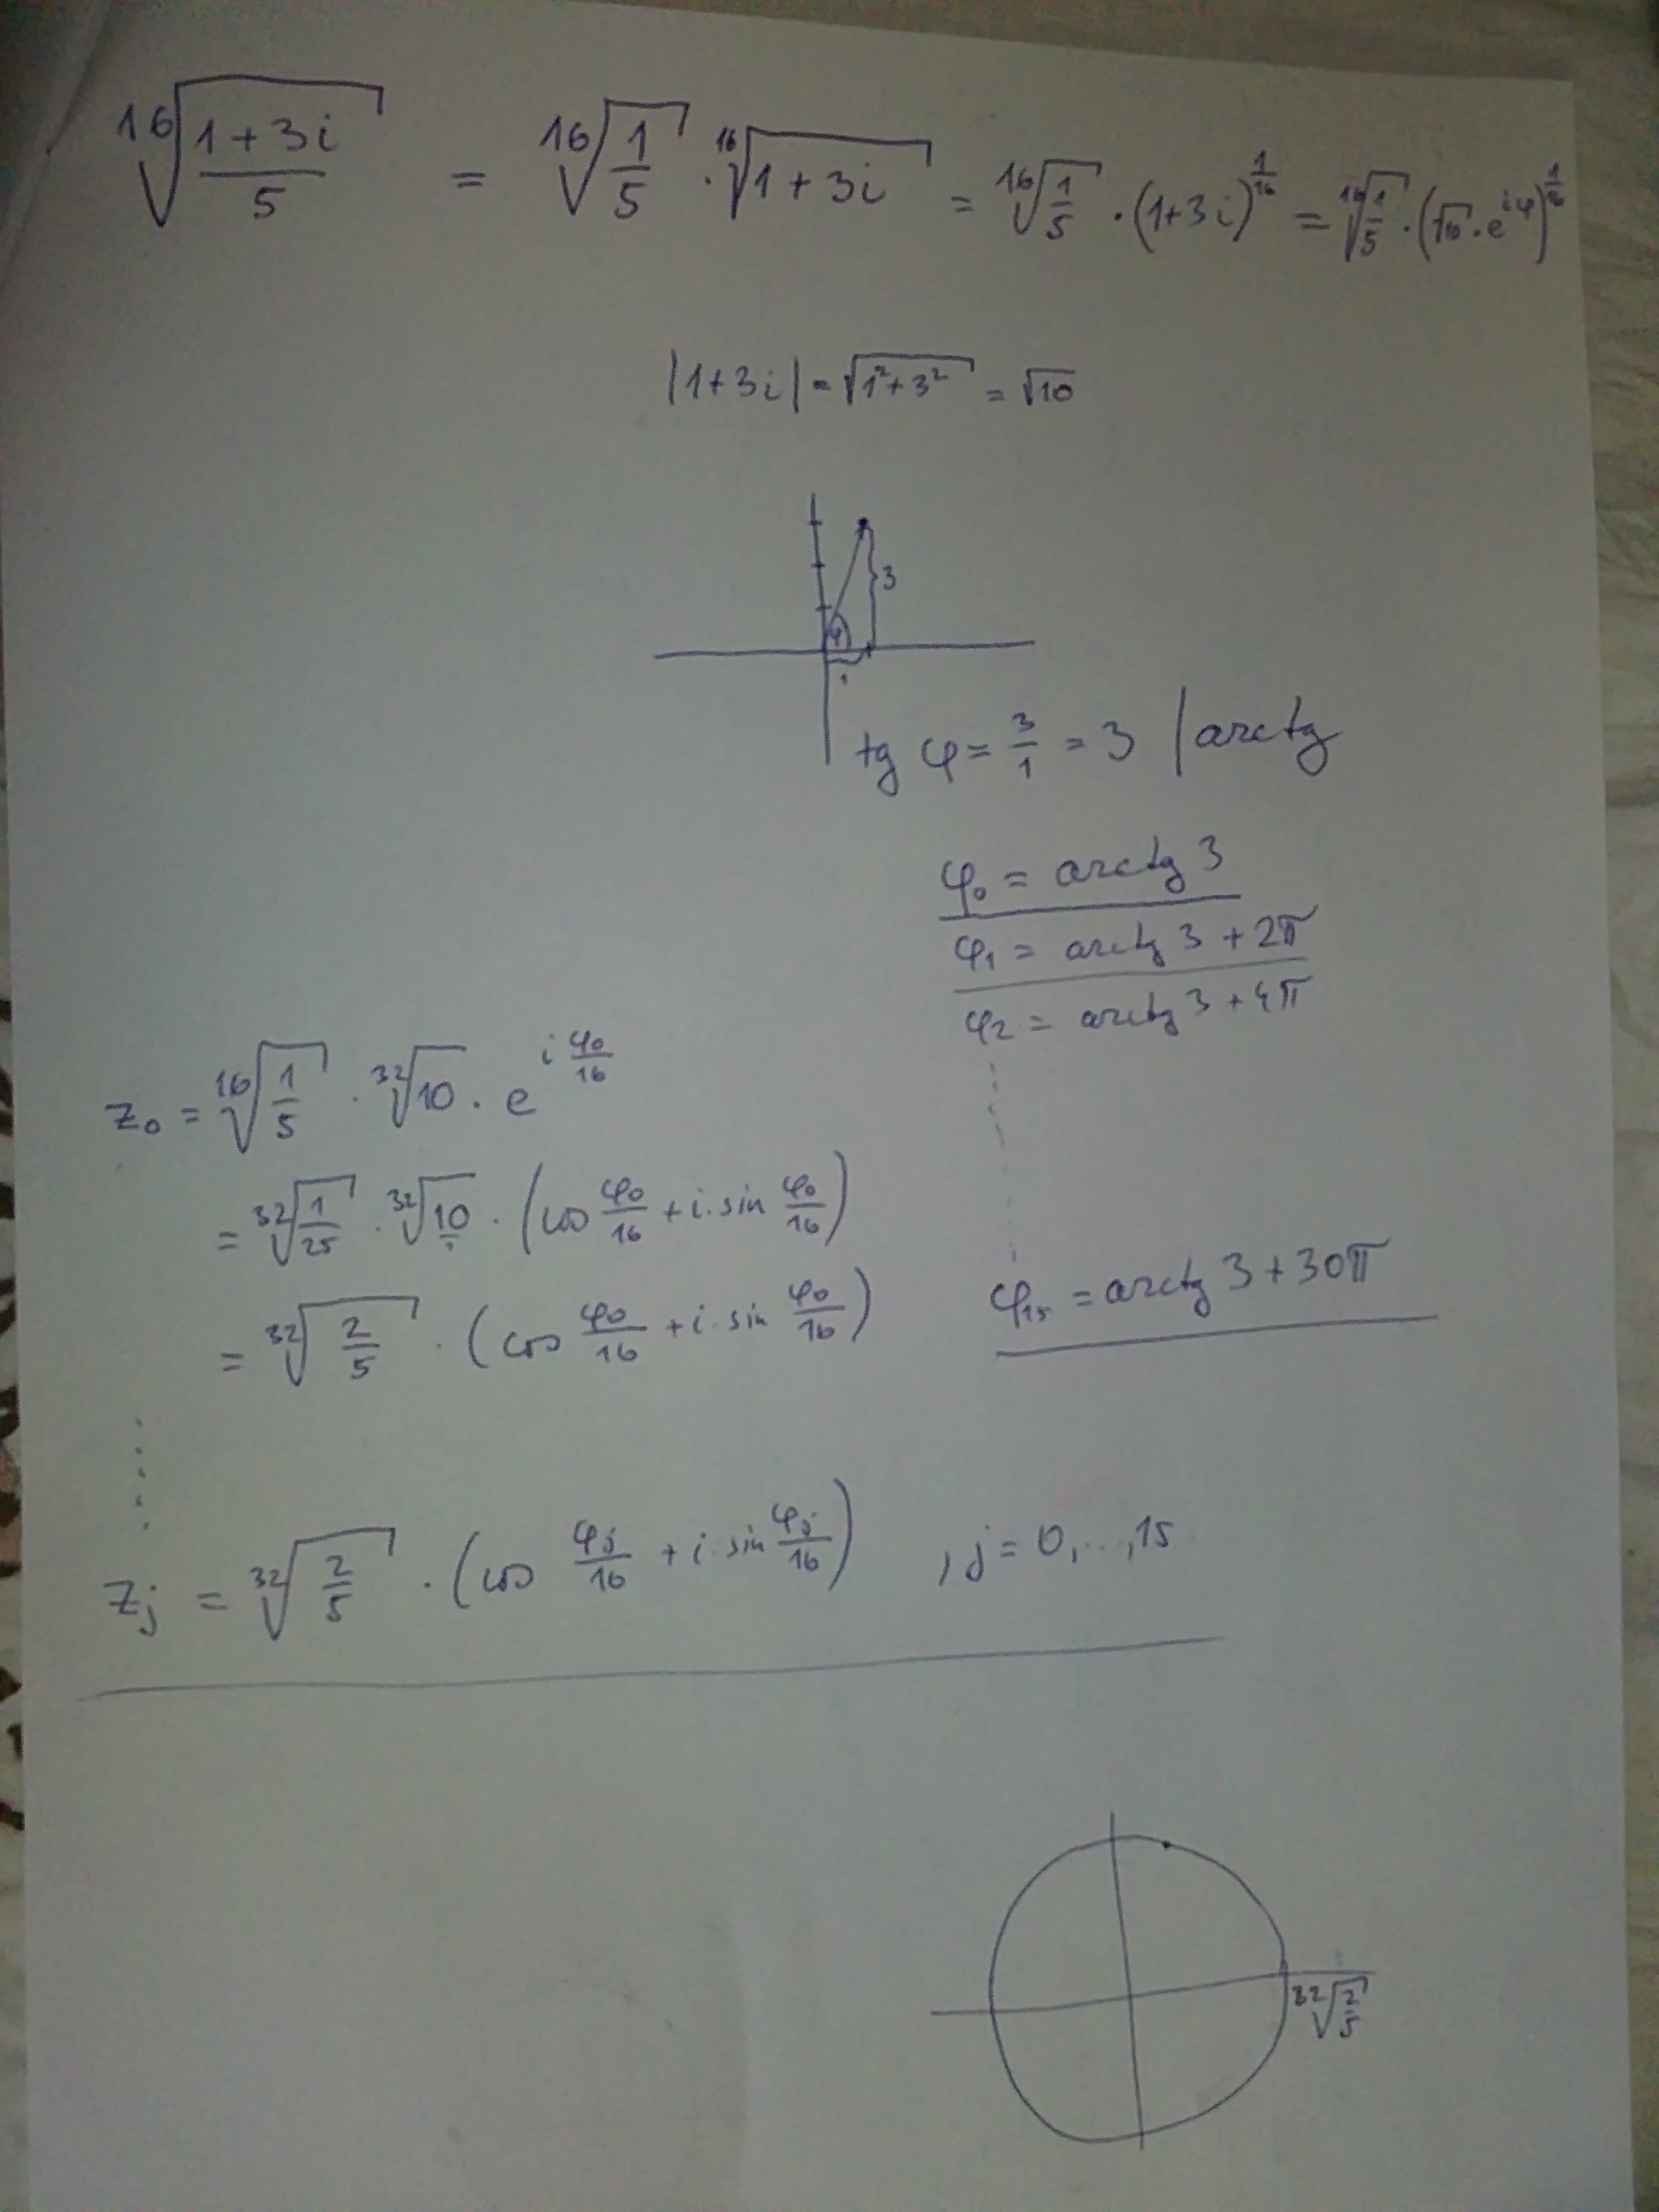 ¹⁶√((1+3i)/5) = ¹⁶√(1/5) · ¹⁶√(1+3i) = ¹⁶√(1/5) · (1+3i)^(1/16) = ¹⁶√(1/5) · (√10 · e^(iφ))^(1/16)
|1+3i| = √(1²+3²) = √10
3
φ
1
tg φ = 3/1 = 3 | arctg
φ₀ = arctg 3
φ₁ = arctg 3 + 2π
φ₂ = arctg 3 + 4π
z₀ = ¹⁶√(1/5) · ³²√10 · e^(i φ₀/16)
= ³²√(1/25) · ³²√10 · (cos φ₀/16 + i · sin φ₀/16)
φ₁₅ = arctg 3 + 30π
= ³²√(2/5) · (cos φ₀/16 + i · sin φ₀/16)
zⱼ = ³²√(2/5) · (cos φⱼ/16 + i · sin φⱼ/16) , j = 0,...,15
³²√(2/5)